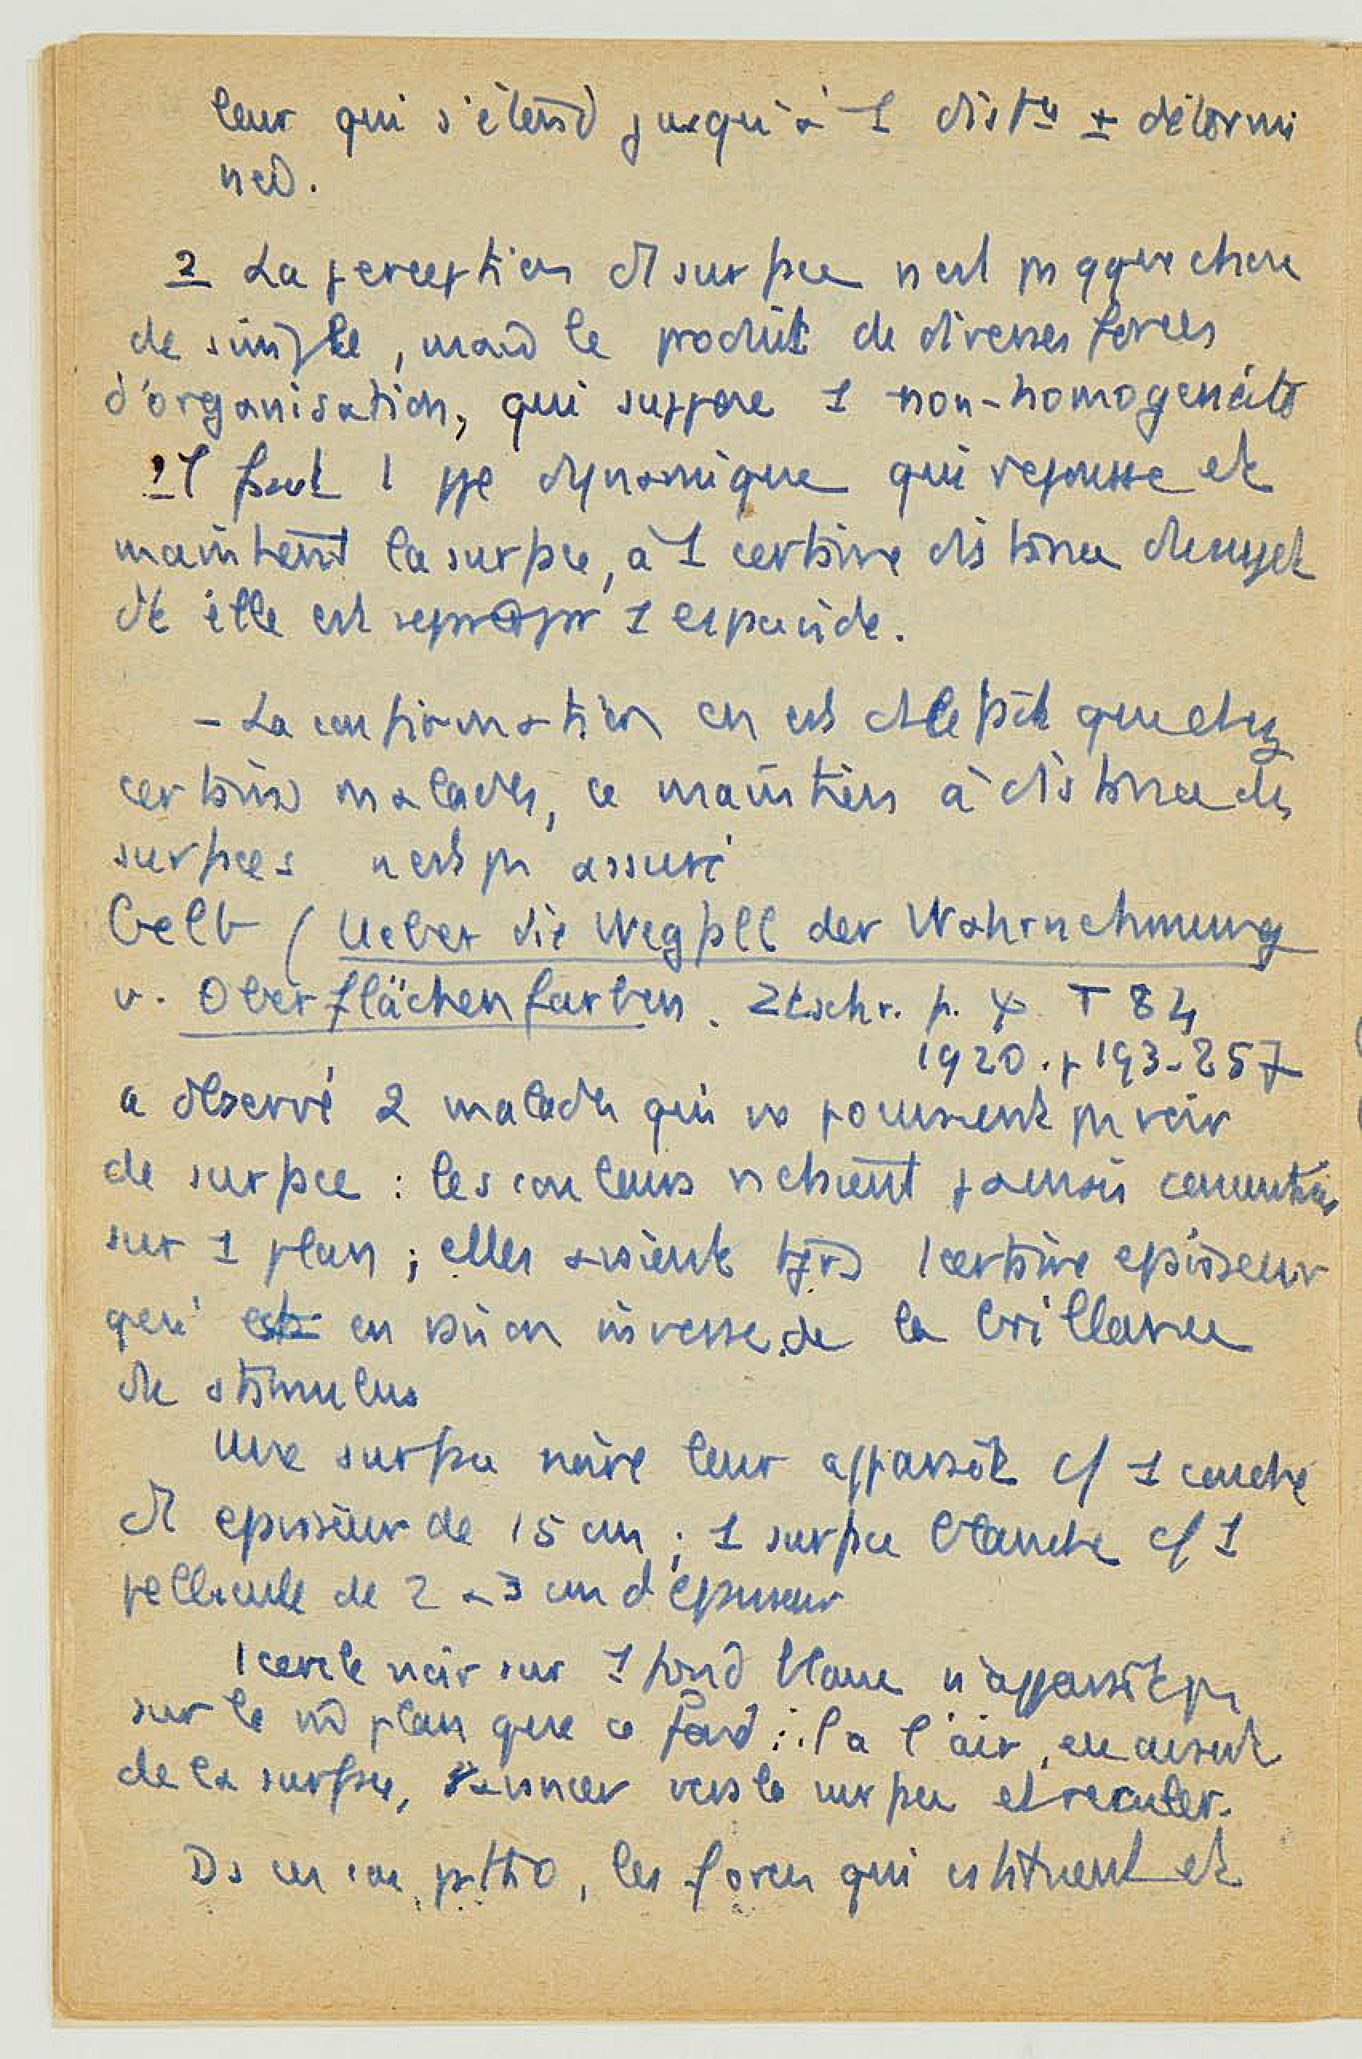 leur qui s'étend jusqu'à 1 distce ± détermi
née.
2 La perception d'1 surface n'est pas qqure chose
de simple, mais le produit de diverses forces
d'organisation, qui suppose 1 non-homogénéité
Il faut 1 dynamique qui repousse et
maintient la surface, à 1 certaine distance du sujet
dt elle est séparée par 1 espace vide.
- La confirmation en est ds le fait que chez
certains malades, ce maintien à distance des
surfaces n'est pas assuré
Gelb (Ueber die Wegfall der Wahrnehmung
v. Oberflächenfarben. Ztschr. f. ψ T 84
1920. p 193-257
a observé 2 malades qui ne pouvaient pas voir
de surface : les couleurs n'étaient jamais concentrées
sur 1 plan ; elles avaient tjrs 1 certaine épaisseur
qui est en raison inverse de la brillance
du stimulus
Une surface noire leur apparaît c/ 1 couche
d'1 épaisseur de 15 cm ; 1 surface blanche c/ 1
pellicule de 2 à 3 cm d'épaisseur
1 cercle noir sur 1 fond blanc n'apparaît pas
sur le m̂ plan que ce fond : il a l'air, en avant
de la surface, avancer vers la surface et reculer.
Ds ces cas patho, les forces qui constituent et